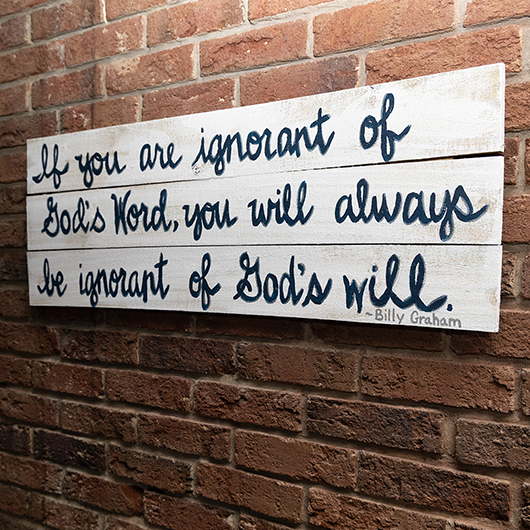 If you are ignorant of
God's Word, you will always
be ignorant of God's will.
~Billy Graham